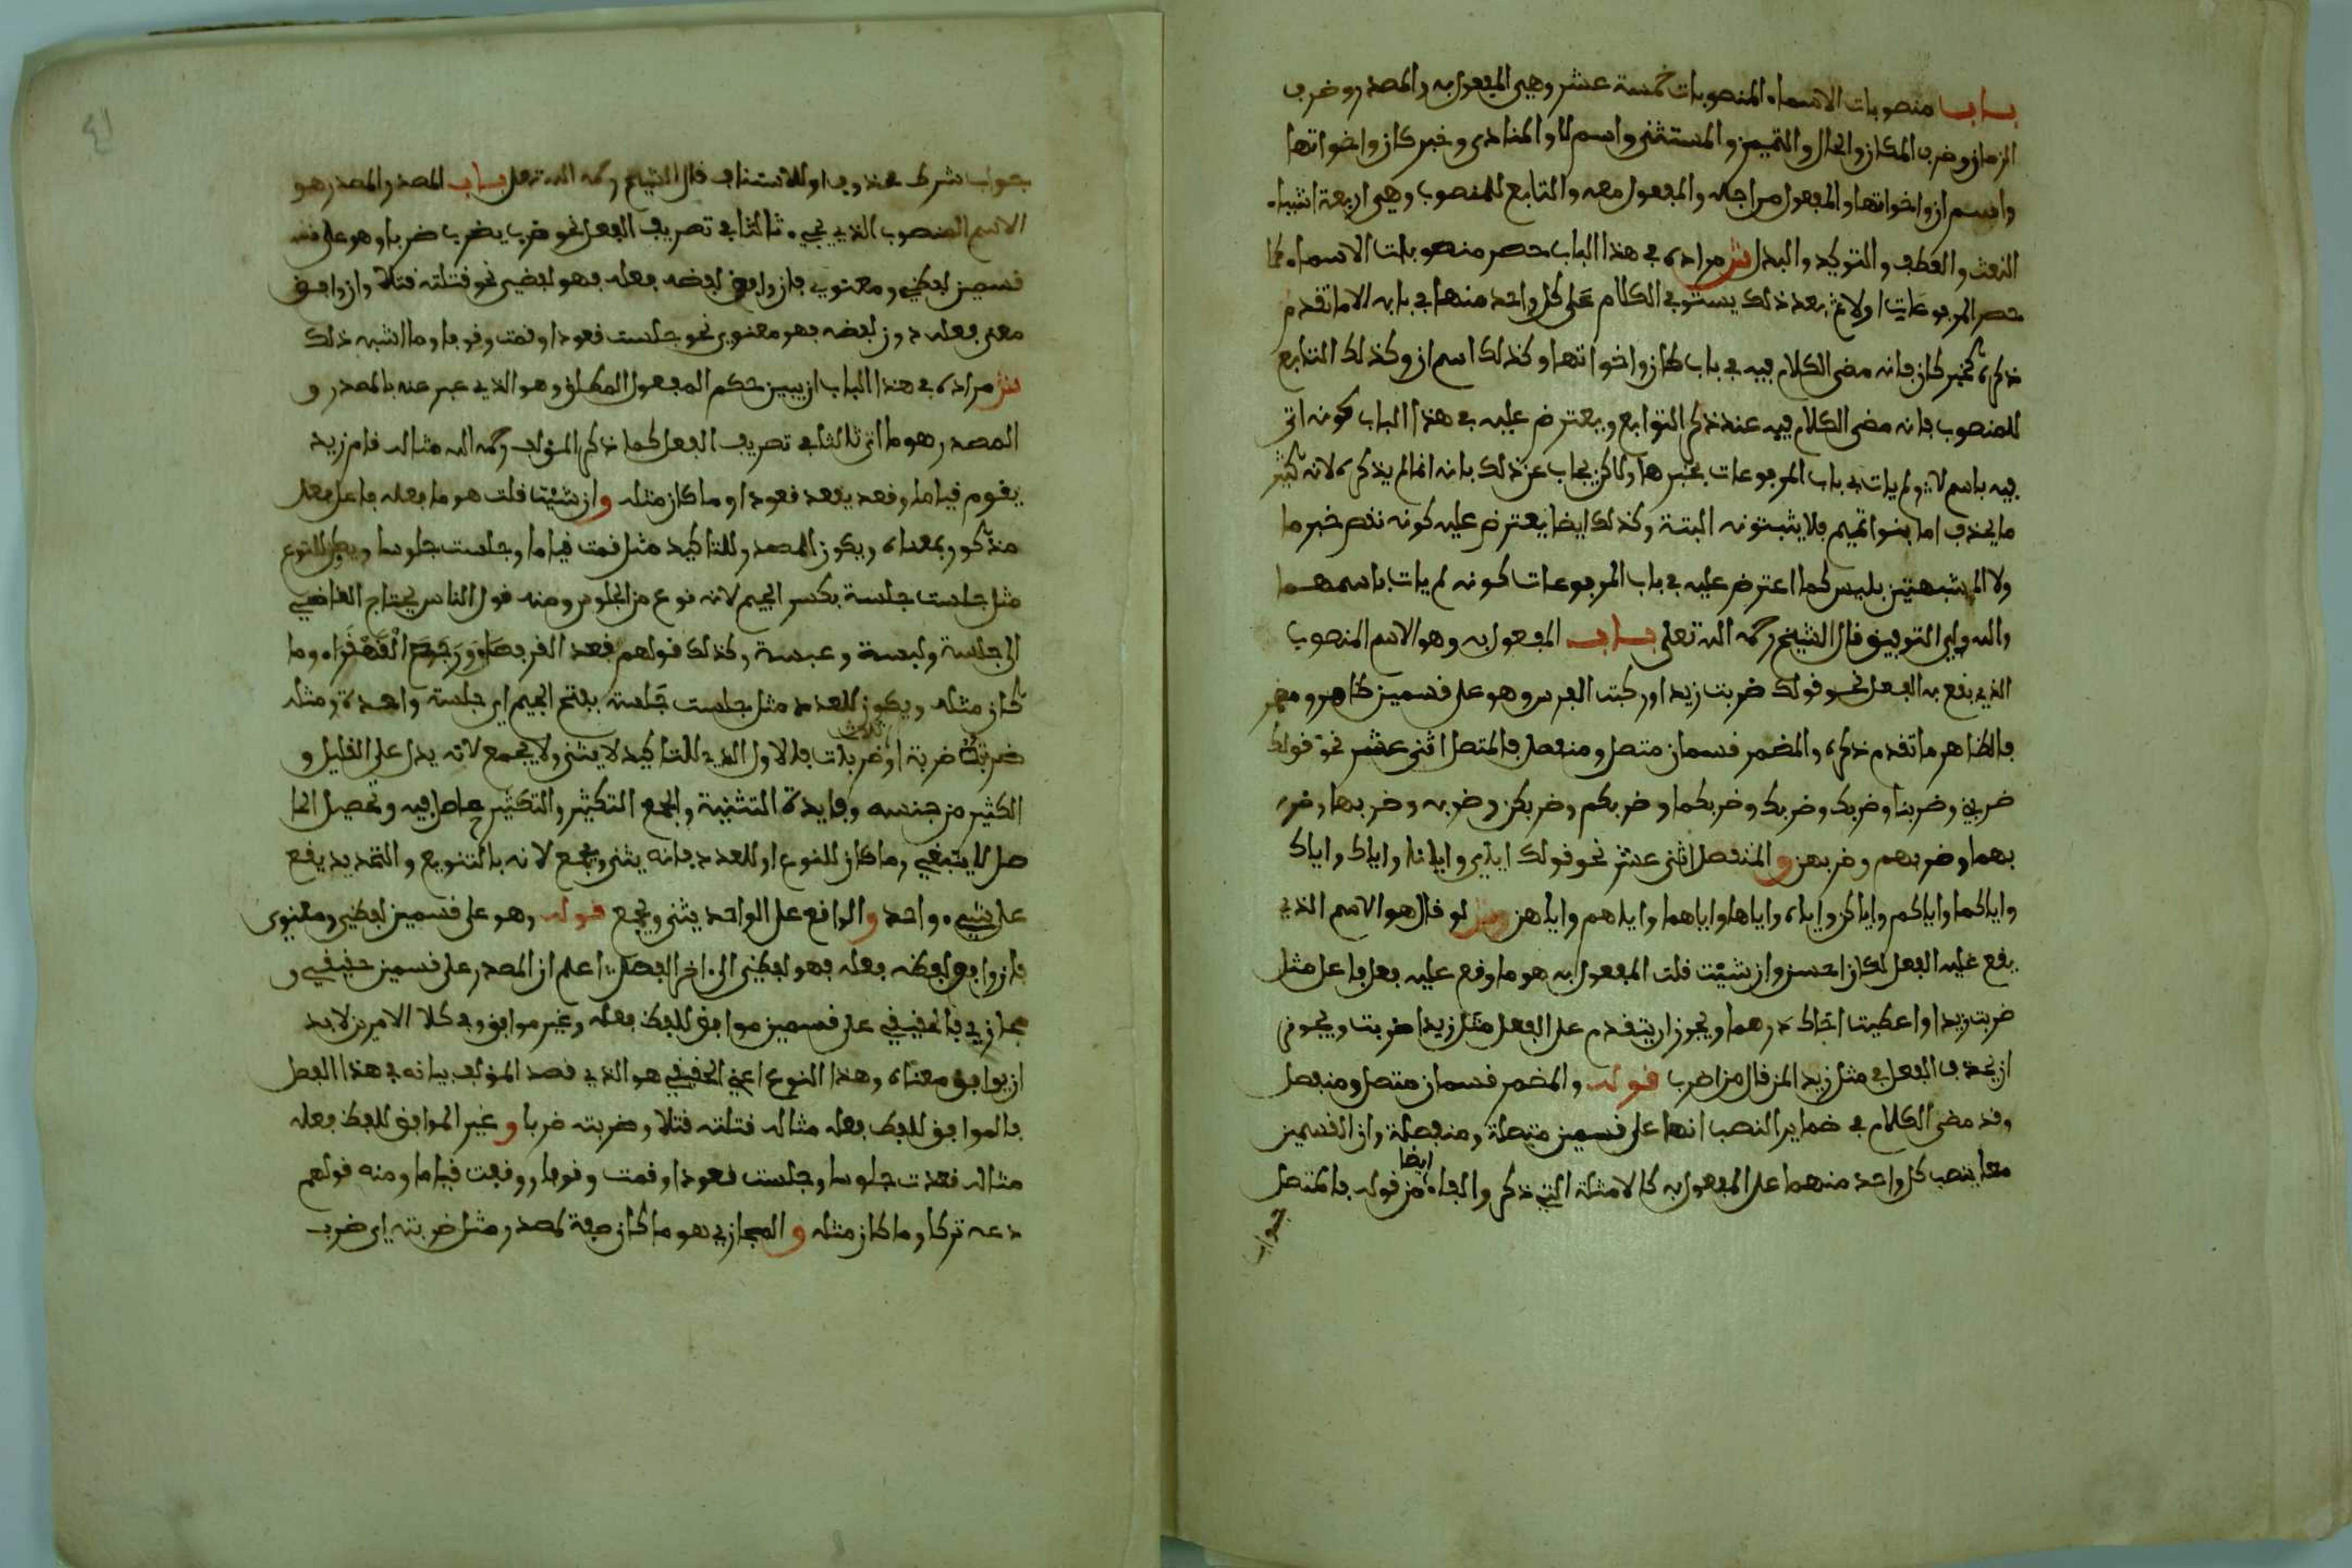 باب منصوبات الاسماء المنصوبات خمسة عشر وهي المفعول به والمصدر وظرف
الزمان وظرف المكان والحال والتمييز والمستثنى واسم لا والمنادى وخبر كان واخواتها
واسم ان واخواتها والمفعول من اجله والمفعول معه والتابع للمنصوب وهي اربعة اشياء
النعت والعطف والتوكيد والبدل ش مراده في هذا الباب حصر منصوبات الاسماء كما
حصر المرفوعات اولا ثم بعد ذلك يستوفي الكلام على كل واحد منها في بابه الا ما تقدم
ذكره كخبر كان فانه مضى الكلام فيه في باب كان واخواتها وكذلك اسم ان وكذلك التابع
للمنصوب فانه مضى الكلام فيه عند ذكر التوابع ويعترض عليه في هذا الباب كونه اتى
فيه باسم لا ولم يات في باب المرفوعات بخبرها ولاكن يجاب عن ذلك بانه انما لم يذكره لانه كثير
ما يحذف اما بنوا تميم فلا يثبتونه البتة وكذلك ايضا يعترض عليه كونه نقص خبر ما
ولا المشبهتين بليس كما اعترض عليه في باب المرفوعات كونه لم يات باسمهما
والله ولي التوفيق قال الشيخ رحمه الله تعلى باب المفعول به وهو الاسم المنصوب
الذي يقع به الفعل نحو قولك ضربت زيدا وركبت الفرس وهو على قسمين ظاهر ومضمر
فالظاهر ما تقدم ذكره والمضمر قسمان متصل ومنفصل فالمتصل اثنى عشر نحو قولك
ضربني وضربنا وضربك وضربك وضربكما وضربكم وضربكن وضربه وضربها وضر
بهما وضربهم وضربهن والمنفصل اثنى عشر نحو قولك اياي وايانا واياك واياك
واياكما واياكم واياكن واياه واياها واياهما واياهم واياهن ش لو قال هو الاسم الذي
يقع عليه الفعل لكان احسن وان شيت قلت المفعول به هو ما وقع عليه فعل فاعل مثل
ضربت زيدا واعطيت اخاك درهما ويجوز ان يتقدم على الفعل مثل زيدا ضربت ويجوز
ان يحذف الفعل في مثل زيد المن قال من اضرب قوله والمضمر قسمان متصل ومنفصل
وقد مضى الكلام في ضماير النصب انها على قسمين متصلة ومنفصلة وان القسمين
معا ينصب كل واحد منهما على المفعول به كالامثلة التي ذكر والفاء ايضا من قوله فالمتصل
جواب
جواب شرط محذوف او للاستيناف قال الشيخ رحمه الله تعلى باب المصدر والمصدر هو
الاسم المنصوب الذي يجيء ثالثا في تصريف الفعل نحو ضرب يضرب ضربا وهو على
قسمين لفظي ومعنوي فان وافق لفظه فعله فهو لفظي نحو قتلته قتلا وان وافق
معنى فعله دون لفظه فهو معنوي نحو جلست قعودا وقمت وقوفا وما اشبه ذلك
ش مراده في هذا الباب ان يبين حكم المفعول المطلق وهو الذي عبر عنه بالمصدر و
المصدر هو ما اتى ثالثا في تصريف الفعل كما ذكر المؤلف رحمه الله مثاله قام زيد
يقوم قياما وقعد يقعد قعودا وما كان مثله وان شيت قلت هو ما فعله فاعل فعل
مذكور بمعناه ويكون المصدر للتاكيد مثل قمت قياما وجلست جلوسا ويكون للنوع
مثل جلست جلسة بكسر الجيم لانه نوع من الجلوس ومنه قول الناس يحتاج القاضي
الى جلسة ولبسة وعبسة وكذلك قولهم قعد القرفصاء ورجع القهقرا وما
كان مثله ويكون للعدد مثل جلست جلسة بفتح الجيم اي جلسة واحدة ومثله
ضربت ضربة او ثلاث ضربات فالاول الذي للتاكيد لا يثنى ولا يجمع لانه يدل على القليل و
الكثير من جنسه وفايدة التثنية والجمع التكثير والتكثير حاصل فيه وتحصيل الحا
صل لا ينبغي وما كان للنوع او للعدد فانه يثنى ويجمع لانه بالتنويع والتعديد يقع
على شيء واحد والواقع على الواحد يثنى ويجمع قوله وهو على قسمين لفظي ومعنوي
فان وافق لفظه فعله فهو لفظي الى اخر الفصل اعلم ان المصدر على قسمين حقيقي و
مجازي فالحقيقي على قسمين موافق للفظ فعله وغير موافق وفي كلا الامرين لا بد
ان يوافق معناه وهذا النوع اعني الحقيقي هو الذي قصد المؤلف بيانه في هذا الفصل
فالموافق للفظ فعله مثاله قتلته قتلا وضربته ضربا وغير الموافق للفظ فعله
مثاله قعدت جلوسا وجلست قعودا وقمت وقوفا ووقفت قياما ومنه قولهم
دعه تركا وما كان مثله والمجازي هو ما كان صفة لمصدر مثل ضربته اي ضرب